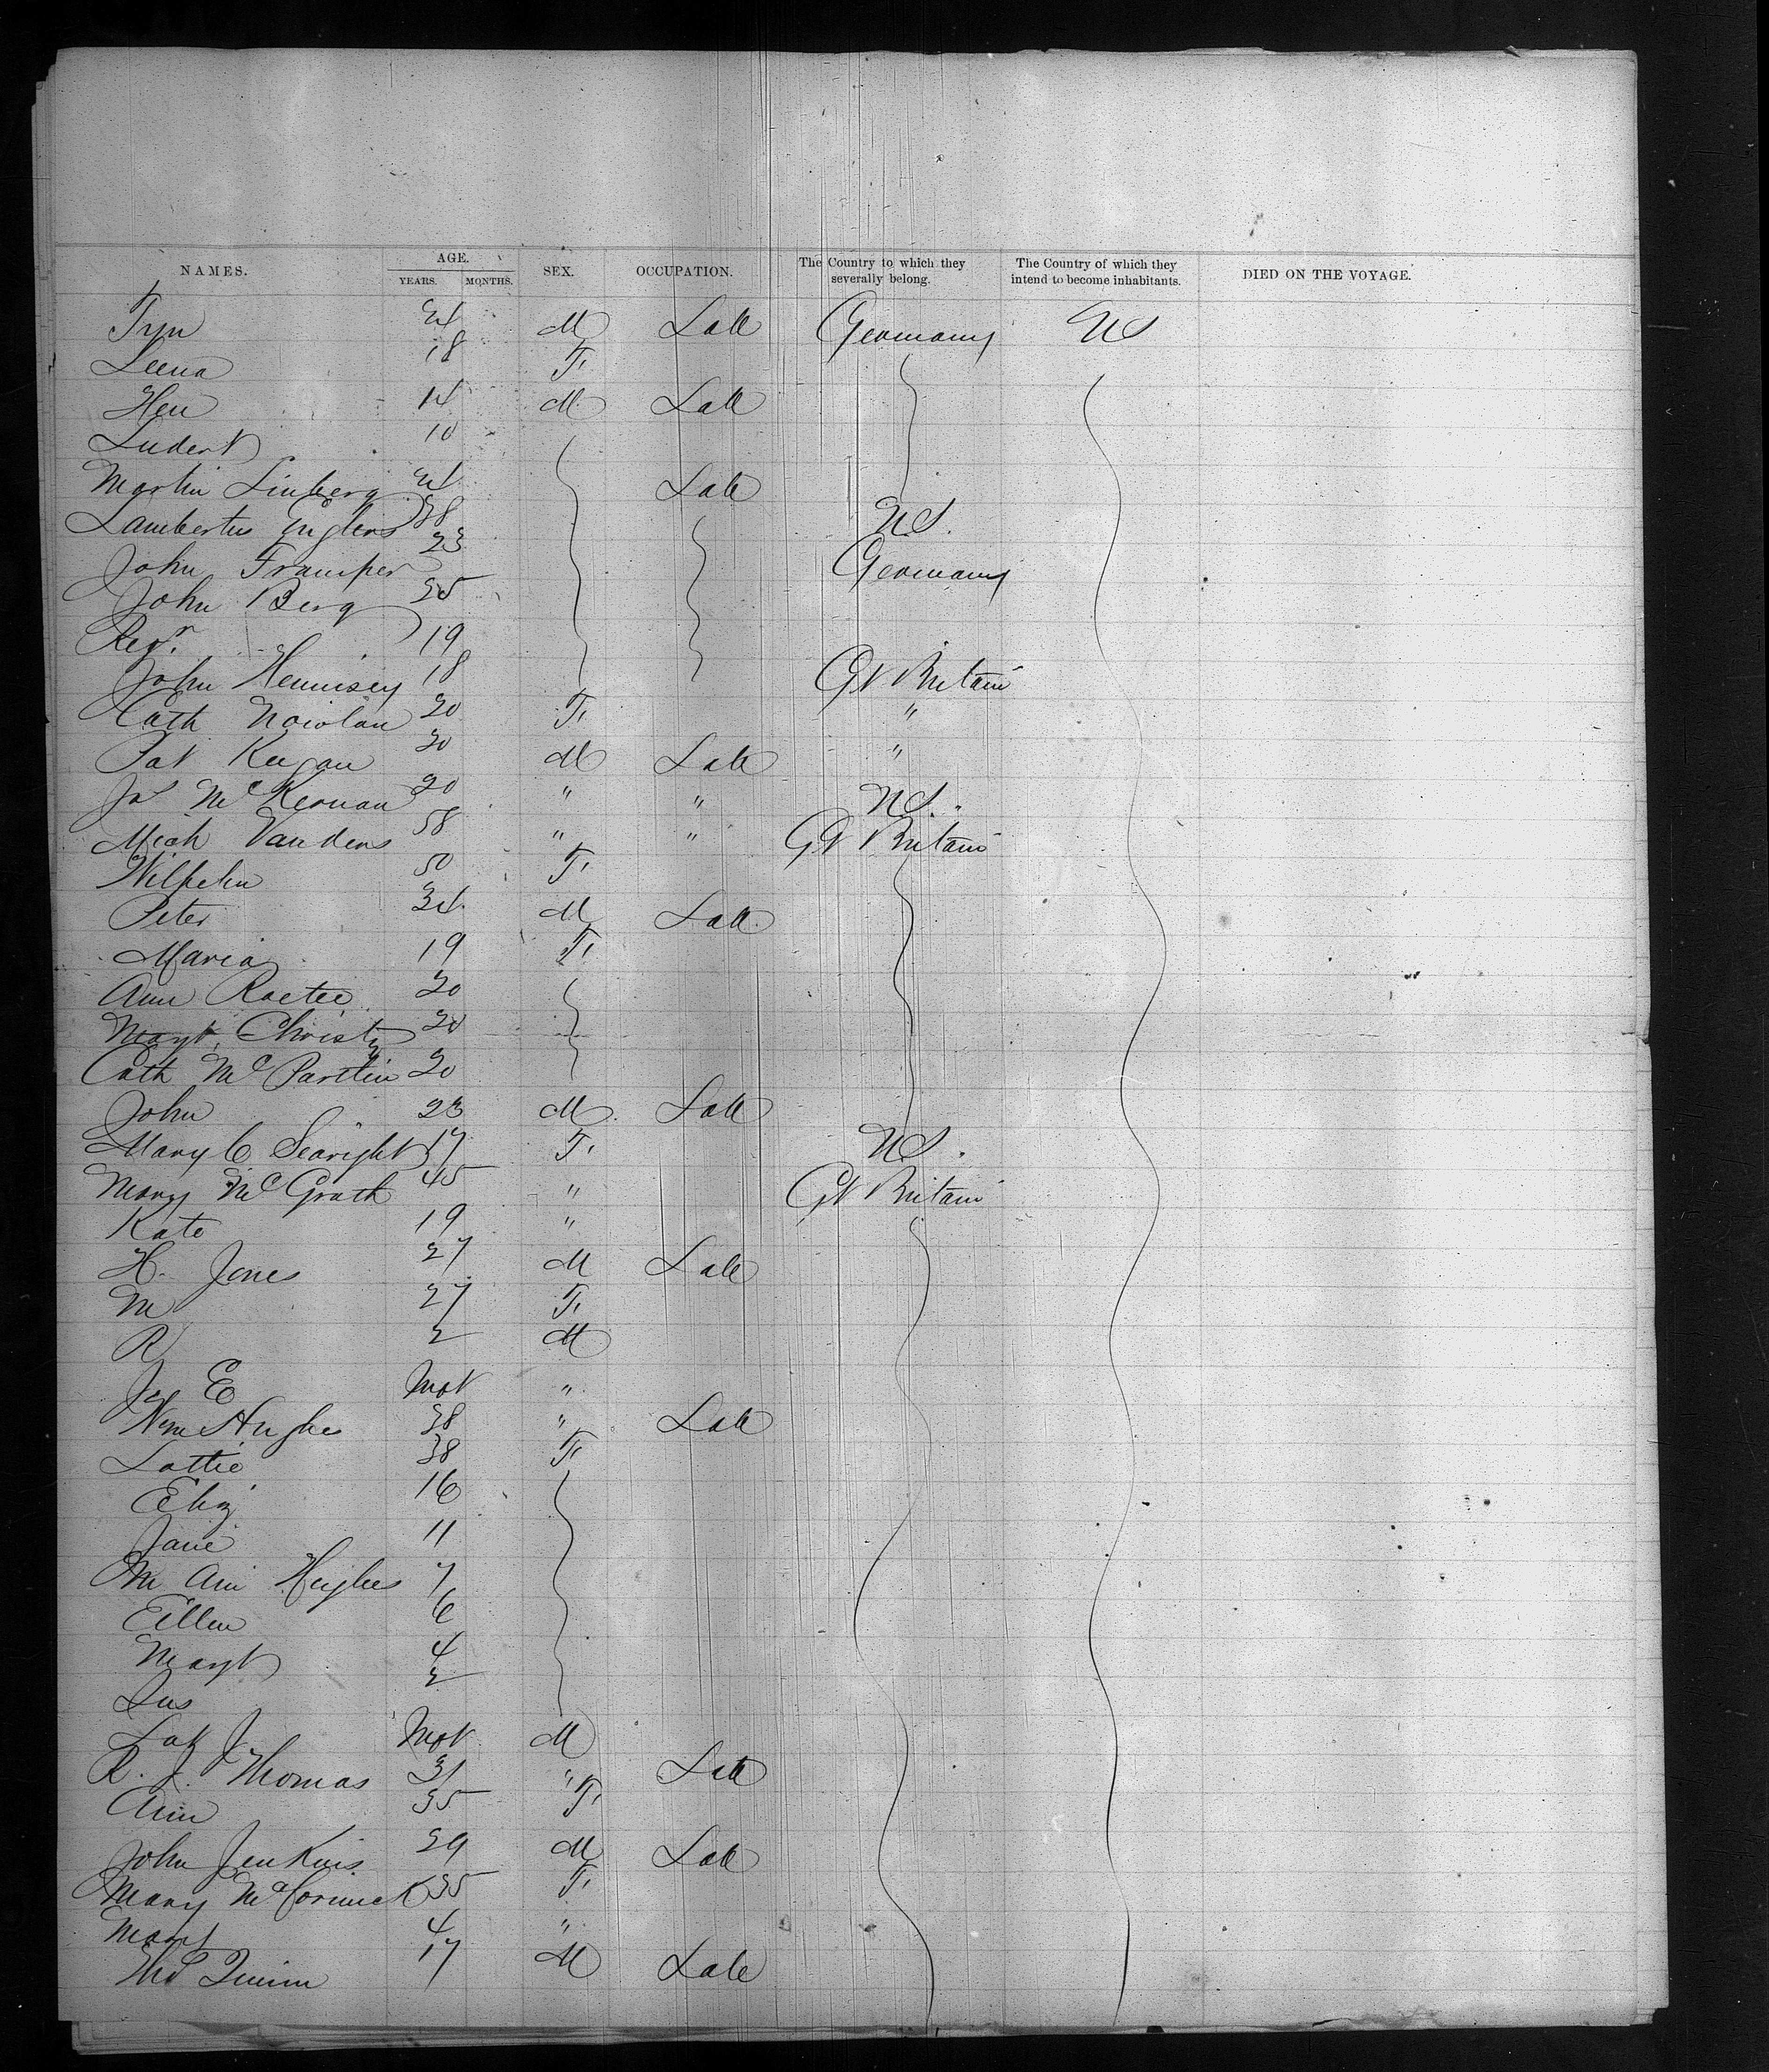 NAMES. AGE. YEARS. MONTHS. SEX. OCCUPATION. The Country to which they severally belong. The Country of which they intend to become inhabitants. DIED ON THE VOYAGE.
24 M Lab Germany US
Leena 18 F
Hen 14 M Lab
Ludert 10
Martin Linberg 24 Lab
Lambertus 38 U.S.
John 23 Germany
John Berg 25
19
John Hennisey 18 Gt Britain
Cath Nowlan 20 F "
Pat Keegan 20 M Lab "
Jas McKernan 20 " " U.S.
Mich Vandens 58 " " Gt Britain
Wilhelm 50 F
Peter 24 M Lab
Maria 19 F
Ann 20
Margt Christy 20
Cath McPartlin 20
John 23 M Lab
Mary C Searight 17 F U.S.
Mary McGrath 45 " Gt Britain
Kate 19 "
H. Jones 27 M Lab
M 27 F
R 2 M
E "
Wm Hughes 38 " Lab
Lottie 38 F
Eliz 16
Jane 11
M Ann Hughes 7
Eillen 6
Margt 4
2
M
R. J. Thomas 31 " Lab
Ann 35 F
John Jenkins 29 M Lab
Mary McCormick 35 F
Mary 4 "
Thos Quinn 17 M Lab